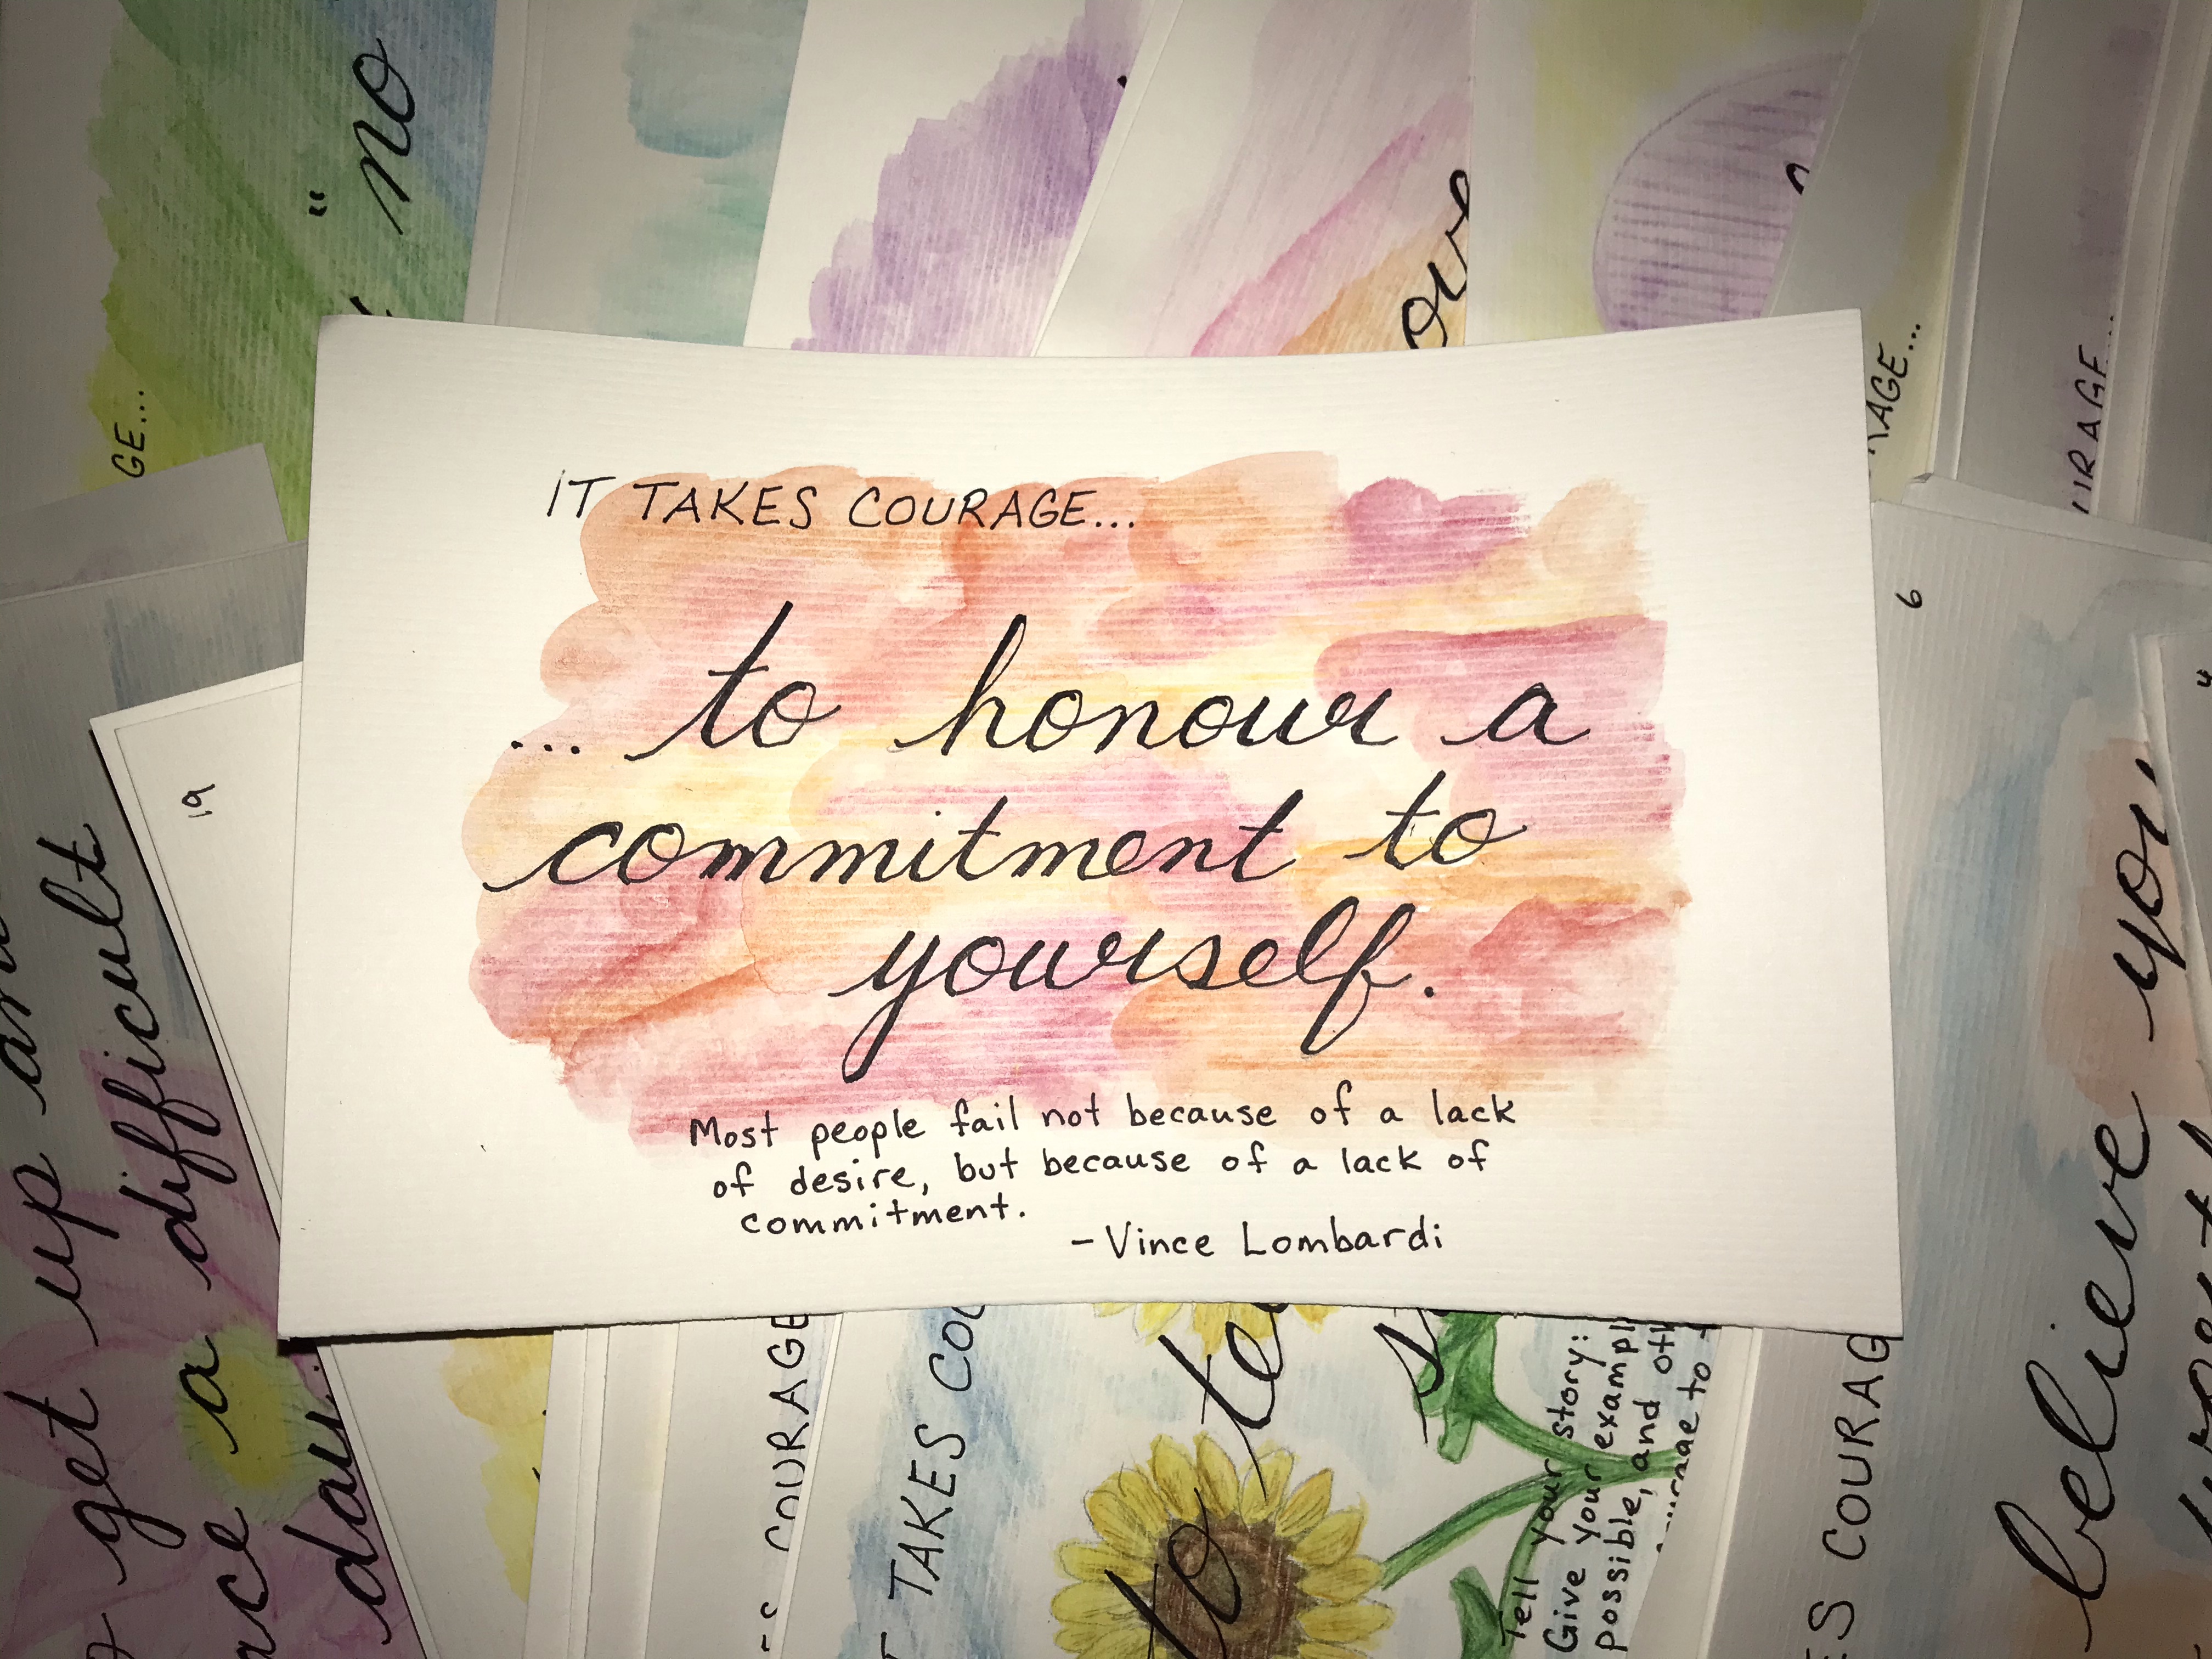 IT TAKES COURAGE...
... to honour a
commitment to
yourself.
Most people fail not because of a lack
of desire, but because of a lack of
commitment.
- Vince Lombardi
GE...
" no
ove
AGE...
URAGE...
6
4
19
get up and
a difficult
day.
COURAGE
T TAKES COU
to te
Tell your story:
Give your exampl
possible, and oth
ES COURAG
believe you